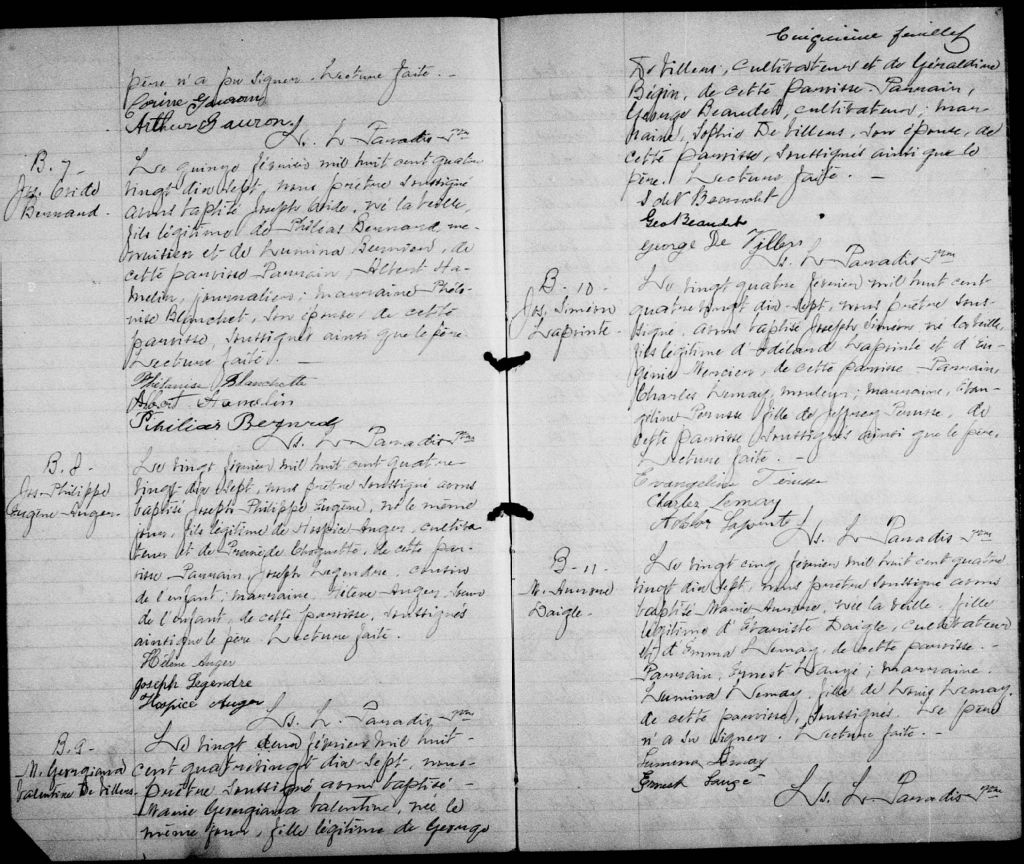 père n'a pu signer. Lecture faite. –
Corine Gauron
Arthur Gauron
Ls. L. Paradis ptre
B. 7
Jos. Ovide
Bernard.
Le quinze février mil huit cent quatre
vingt dix sept, nous prêtre soussigné
avons baptisé Joseph Ovide, né la veille,
fils légitime de Philéas Bernard, me-
nuisier et de Lumina Bernier, de
cette paroisse. Parrain, Albert Ha-
melin, journalier; marraine Philo-
mise Blanchet, son épouse, de cette
paroisse, soussignés ainsi que le père.
Lecture faite. –
Blanchette
Albert Hamelin
Philias Bernard
Ls. L. Paradis ptre
B. 8.
Jos. Philippe
Eugène Auger.
Le vingt février mil huit cent quatre-
vingt dix sept, nous prêtre soussigné avons
baptisé Joseph Philippe Eugène, né le même
jour, fils légitime de Hospice Auger, cultiva
teur et de Choquette, de cette pa-
roisse. Parrain, Joseph Legendre, cousin
de l'enfant; marraine, Hélène Auger, soeur
de l'enfant, de cette paroisse, soussignés
ainsi que le père. Lecture faite.
Hélène Auger
Joseph Legendre
Hospice Auger
Ls. L. Paradis, ptre
B. 9.
M. Georgiana
Valentine De Villers
Le vingt deux février mil huit-
cent quatrevingt dix sept, nous-
Prêtre soussigné avons baptisé –
Marie Georgiana Valentine, née le
même jour, fille légitime de George
Cinquième feuillet
De Villers, cultivateur et de Géraldine
Bégin, de cette paroisse. Parrain,
George Beaudet, cultivateur; mar-
raine, Sophie De Villers, son épouse, de
cette paroisse, soussignés ainsi que le
père. Lecture faite. –
S de V Beaudet
Geo Beaudet
George De Villers
Ls. L. Paradis ptre
B – 10 –
Jos. Siméon
Laprinte.
Le vingt quatre février mil huit cent
quatre vingt dix sept, nous prêtre sous-
signé, avons baptisé Joseph Siméon né la veille,
fils légitime d'Odélard Laprinte et d'Eu-
génie Mercier, de cette paroisse. Parrain,
Charles Lemay, mouleur; marraine, Evan-
géline Perusse fille de Perusse, de
cette paroisse soussignés ainsi que le père.
Lecture faite. –
Evangeline Pérusse
Charles Lemay
Laprinte
Ls. L. Paradis ptre
B – 11 –
M. Aurore
Daigle.
Le vingt cinq février mil huit cent quatre
vingt dix sept, nous prêtre soussigné avons
baptisé Marie Aurore, née la veille, fille
légitime d'Evariste Daigle, cultivateur
et d'Emma Lemay, de cette paroisse. –
Parrain, Ernest Laugé; marraine,
Lumina Lemay, fille de Louis Lemay,
de cette paroisse, soussignés. Le père
n'a su signer. Lecture faite. –
Lumina Lemay
Ernest Laugé
Ls. L. Paradis ptre